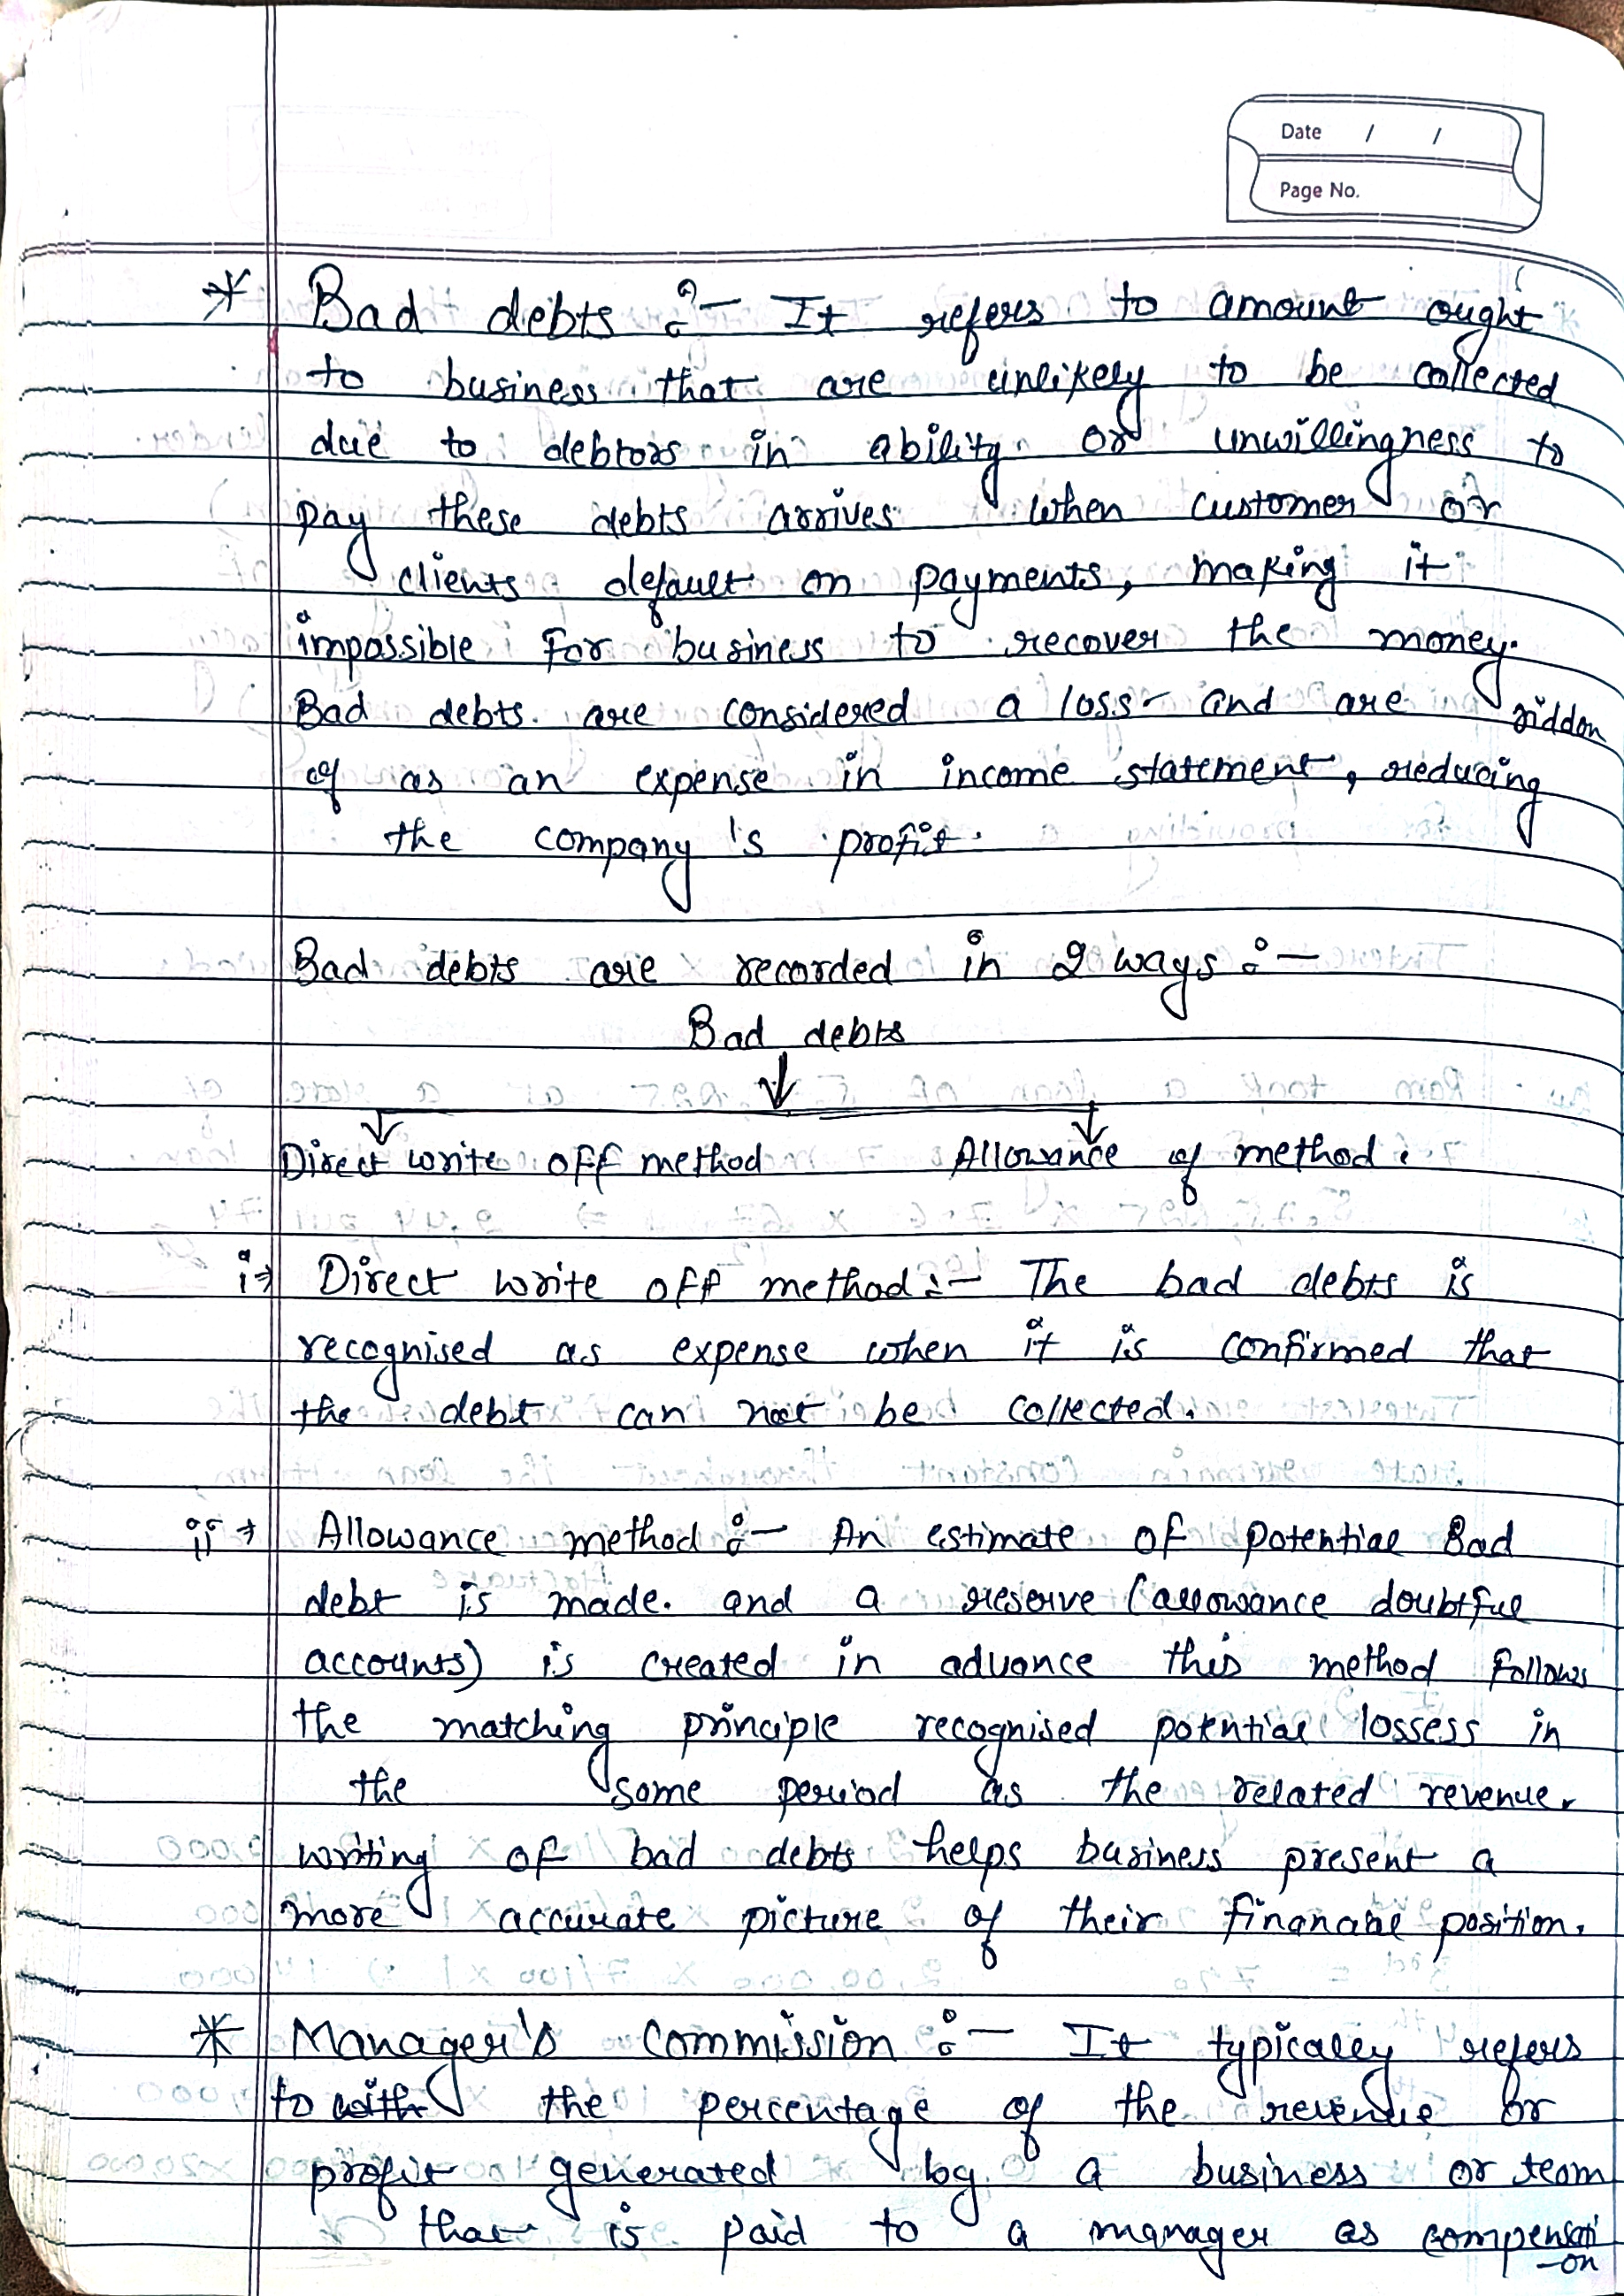 Date / /
Page No.
* Bad debts :- It refers to amount ought
to business that are unlikely to be collected
due to debtors in ability or unwillingness to
pay these debts arrives when customer or
clients default on payments, making it
impossible for business to recover the money.
Bad debts are considered a loss and are riddon
of as an expense in income statement, reducing
the company's profit.
Bad debts are recorded in 2 ways :-
Bad debts
Direct write off method Allowance of method.
i→ Direct write off method :- The bad debts is
recognised as expense when it is confirmed that
the debt can not be collected.
ii→ Allowance method :- An estimate of potential Bad
debt is made. and a reserve (allowance doubtful
accounts) is created in advance this method follows
the matching principle recognised potential lossess in
the some period as the related revenue.
writing of bad debts helps business present a
more accurate picture of their position.
* Manager's Commission :- It typically refers
to with the percentage of the revenue or
profit generated by a business or team
that is paid to a manager as compensati
-on